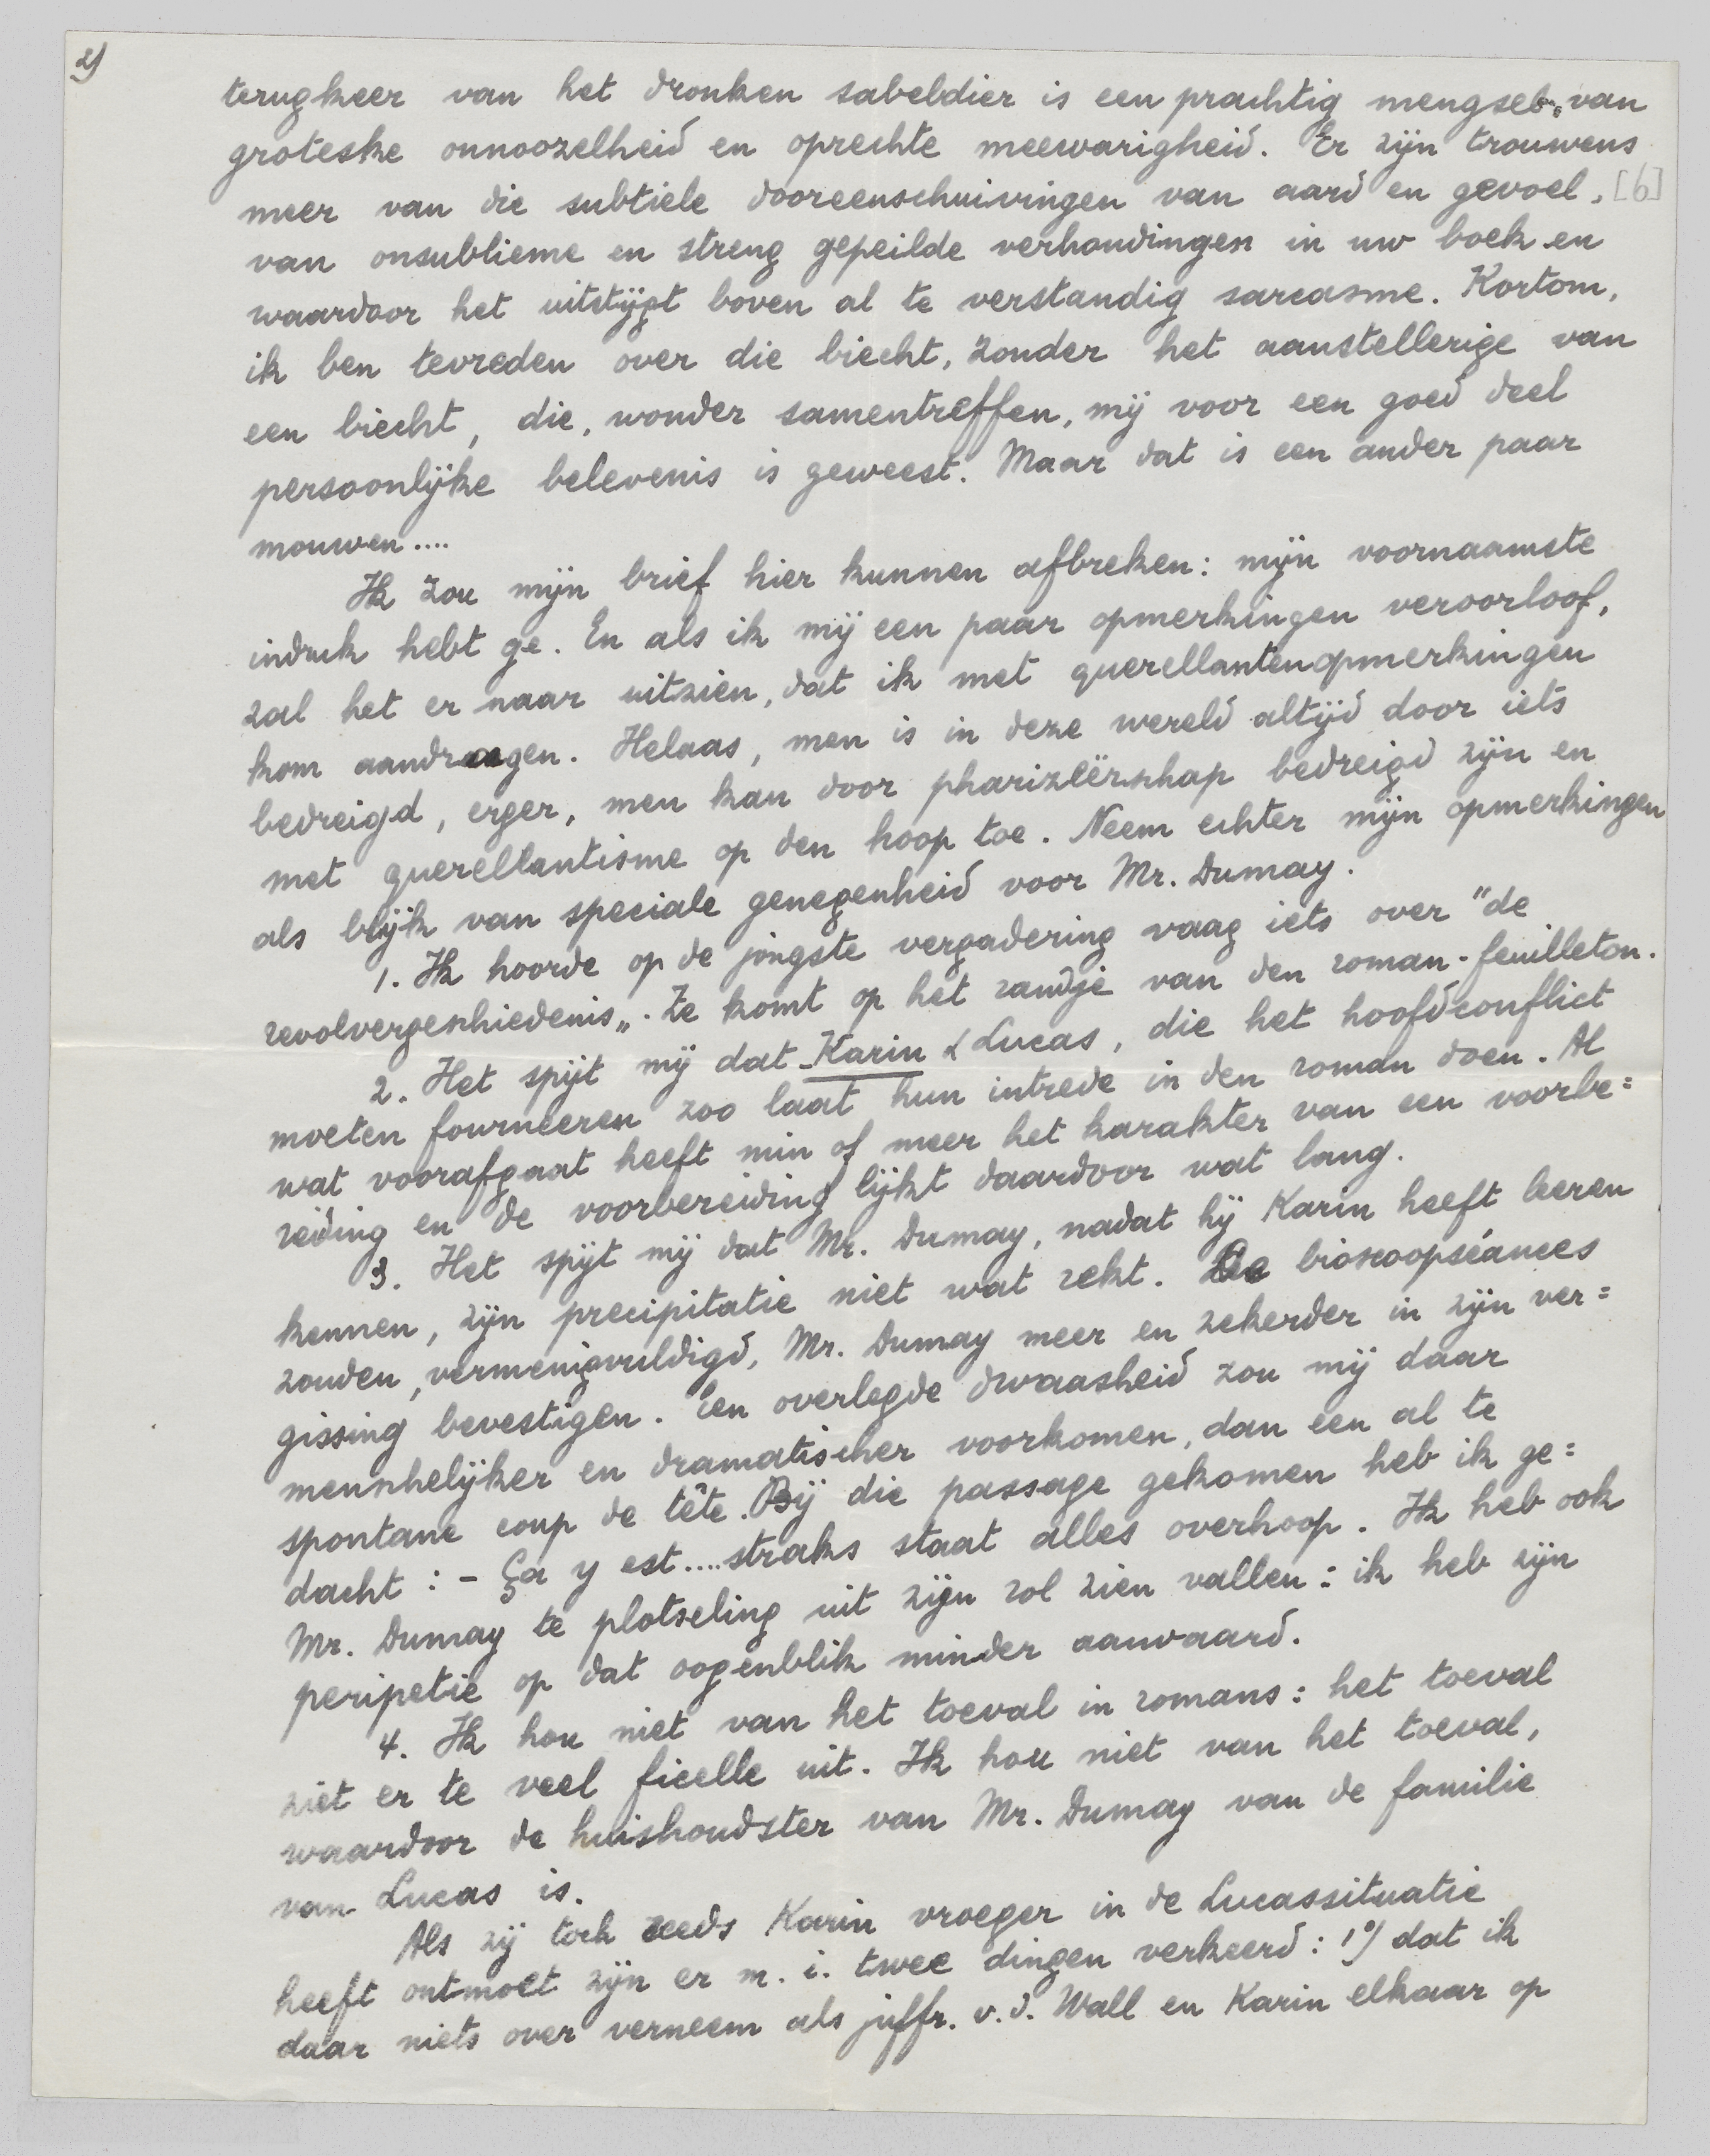 2)
terugkeer van het dronken sabeldier is een prachtig mengsel van
groteske onnoozelheid en oprechte meewarigheid. Er zijn trouwens
meer van die subtiele dooreenschuivingen van aard en gevoel, [6]
van onsublieme en streng gepeilde verhoudingen in uw boek en
waardoor het uitstijgt boven al te verstandig sarcasme. Kortom,
ik ben tevreden over die biecht, zonder het aanstellerige van
een biecht, die, wonder samentreffen, mij voor een goed deel
persoonlijke belevenis is geweest. Maar dat is een ander paar
mouwen....
Ik zou mijn brief hier kunnen afbreken: mijn voornaamste
indruk hebt ge. En als ik mij een paar opmerkingen veroorloof,
zal het er naar uitzien, dat ik met querellantenopmerkingen
kom aandragen. Helaas, men is in deze wereld altijd door iets
bedreigd, erger, men kan door pharizeërschap bedreigd zijn en
met querellantisme op den hoop toe. Neem echter mijn opmerkingen
als blijk van speciale genegenheid voor Mr. Dumay.
1. Ik hoorde op de jongste vergadering vaag iets over "de
revolvergeschiedenis„. Ze komt op het randje van den roman-feuilleton.
2. Het spijt mij dat Karin & Lucas, die het hoofdconflict
moeten fourneeren zoo laat hun intrede in den roman doen. Al
wat voorafgaat heeft min of meer het karakter van een voorbe=
reiding en de voorbereiding lijkt daardoor wat lang.
3. Het spijt mij dat Mr. Dumay, nadat hij Karin heeft leeren
kennen, zijn precipitatie niet wat rekt. De bioscoopséances
zouden, vermenigvuldigd, Mr. Dumay meer en zekerder in zijn ver=
gissing bevestigen. Een overlegde dwaasheid zou mij daar
menschelijker en dramatischer voorkomen, dan een al te
spontane coup de tête. Bij die passage gekomen heb ik ge=
dacht: - Ça y est....straks staat alles overhoop. Ik heb ook
Mr. Dumay te plotseling uit zijn rol zien vallen: ik heb zijn
peripetie op dat oogenblik minder aanvaard.
4. Ik hou niet van het toeval in romans: het toeval
ziet er te veel ficelle uit. Ik hou niet van het toeval,
waardoor de huishoudster van Mr. Dumay van de familie
van Lucas is.
Als zij toch reeds Karin vroeger in de Lucassituatie
heeft ontmoet zijn er m. i. twee dingen verkeerd: 1°/ dat ik
daar niets over verneem als juffr. v. d. Wall en Karin elkaar op